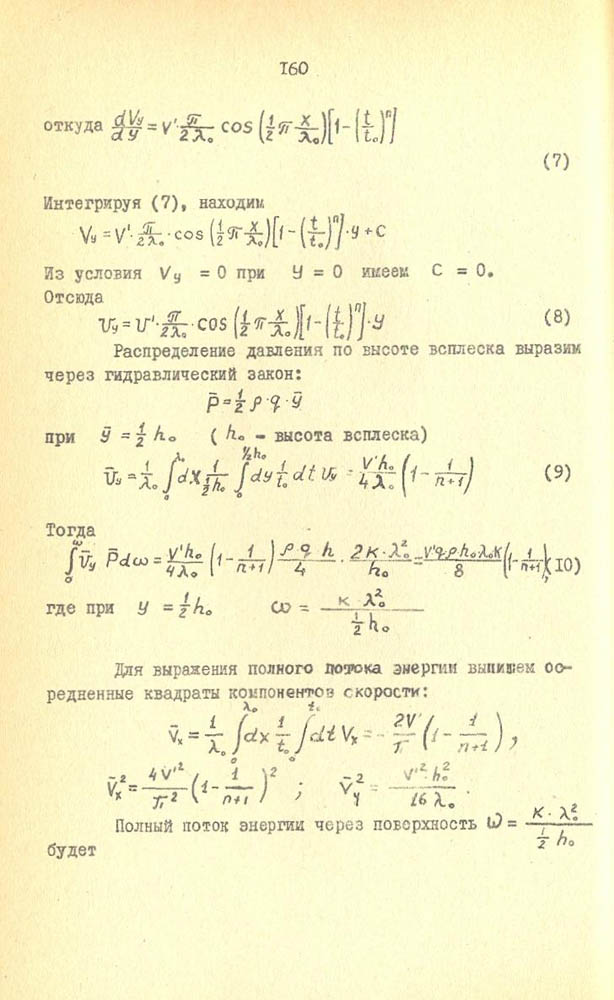 160
откуда dVy/dy = V'·π/2λ₀ cos(1/2 π x/λ₀)[1-(t/t₀)ⁿ]
(7)
Интегрируя (7), находим
Vy = V'·π/2λ₀·cos(1/2 π x/λ₀)[1-(t/t₀)ⁿ]·y+C
Из условия Vy = 0 при y = 0 имеем C = 0.
Отсюда
Vy = V'·π/2λ₀·cos(1/2 π x/λ₀)[1-(t/t₀)ⁿ]·y (8)
Распределение давления по высоте всплеска выразим
через гидравлический закон:
p̄ = 1/2 ρ·g·ȳ
при ȳ = 1/2 h₀ ( h₀ - высота всплеска)
V̄y = 1/λ₀ ∫₀^λ₀ dx 1/(1/2 h₀) ∫₀^(1/2 h₀) dy 1/t₀ ∫ dt Vy = V'h₀/4λ₀ (1 - 1/(n+1)) (9)
Тогда
∫₀^ω V̄y p̄dω = V'h₀/4λ₀ (1 - 1/(n+1)) ρ g h/4 · 2K·λ₀²/h₀ = V'gρh₀λ₀K/8 (1 - 1/(n+1)), (10)
где при y = 1/2 h₀ ω = K λ₀²/(1/2 h₀)
Для выражения полного потока энергии выпишем ос-
редненные квадраты компонентов скорости:
V̄x = 1/λ₀ ∫₀^λ₀ dx 1/t₀ ∫₀^t₀ dt Vx = - 2V'/π (1 - 1/(n+1)),
V̄x² = 4V'²/π² (1 - 1/(n+1))² ; V̄y² = V'²·h₀²/16 λ₀ .
Полный поток энергии через поверхность ω = K·λ₀²/(1/2 h₀)
будет